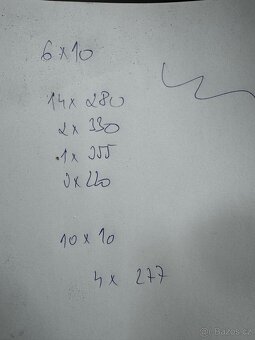 6 x 10
14 x 280
2 x 330
1 x 355
3 x 220
10 x 10
4 x 277
Bazoš.cz